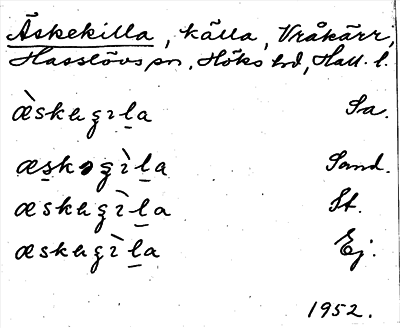 Äskekilla, källa, Vråkärr,
Hasslövs sn, Höks hd, Hall. l.
æ̀skəgɪḻa Sa.
æs̱kəgɪ̀ḻa Sand.
æskəgɪ̀ḻa St.
æskəgɪ̀ḻa Ej.
1952.